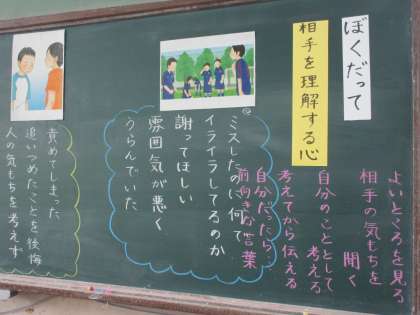 ぼくだって
相手を理解する心
よいところを見る
相手の気もちを
聞く
自分のこととして
考える
考えてから伝える
自分だったら
前向きな言葉
ミスしたのに何で
イライラしてるのか
謝ってほしい
雰囲気が悪く
うらんでいた
責めてしまった
追いつめたことを後悔
人の気もちを考えず